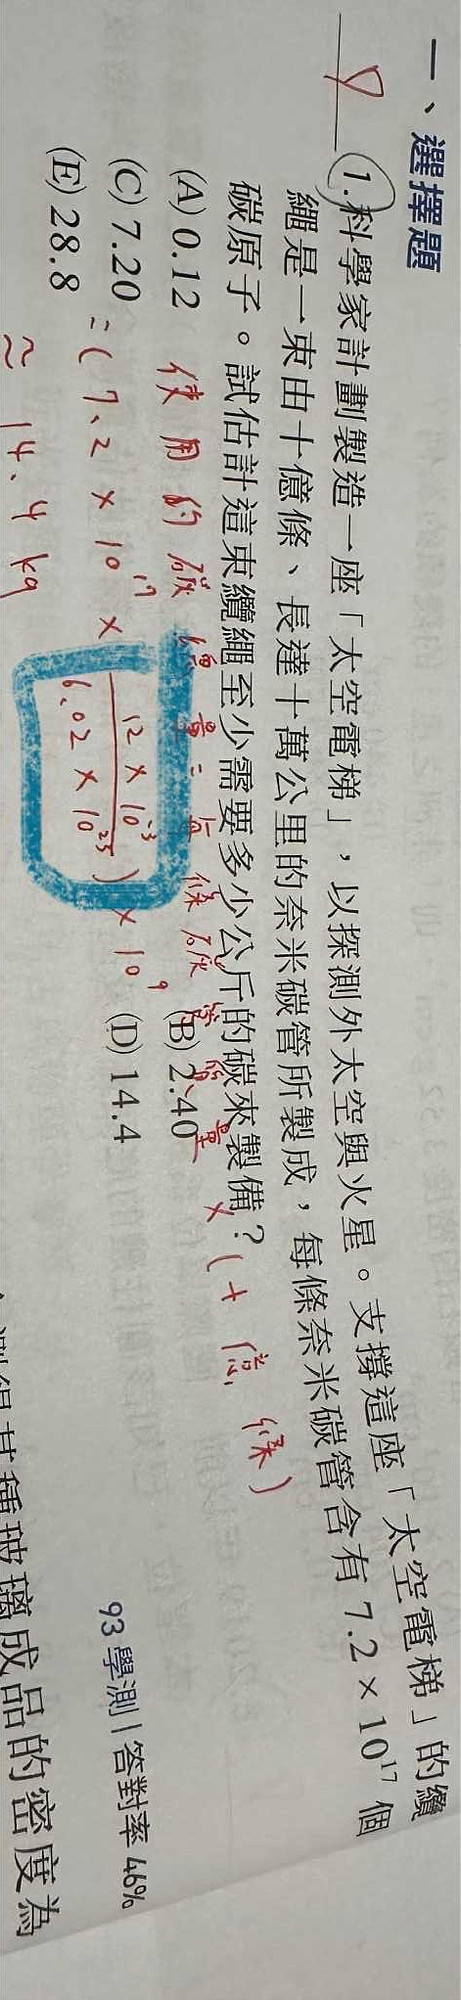 一、選擇題
D 1.科學家計劃製造一座「太空電梯」，以探測外太空與火星。支撐這座「太空電梯」的纜
繩是一束由十億條、長達十萬公里的奈米碳管所製成，每條奈米碳管含有 7.2 × 10¹⁷ 個
碳原子。試估計這束纜繩至少需要多少公斤的碳來製備？
(A) 0.12 (B) 2.40
使用的碳總量= 每條碳管質量 × (十億條)
(C) 7.20 (D) 14.4
= ( 7.2 × 10¹⁷ × 12 × 10⁻³ / 6.02 × 10²³ ) × 10⁹
(E) 28.8
≈ 14.4 kg
93 學測 | 答對率 46%
測得某種玻璃成品的密度為